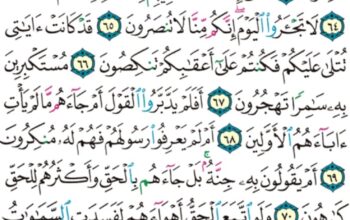 ٦٤ لَا تَجْـَٔرُوا۟ ٱلْيَوْمَ إِنَّكُم مِّنَّا لَا تُنصَرُونَ ٦٥ قَدْ كَانَتْ ءَايَٰتِى
تُتْلَىٰ عَلَيْكُمْ فَكُنتُمْ عَلَىٰٓ أَعْقَٰبِكُمْ تَنكِصُونَ ٦٦ مُسْتَكْبِرِينَ
بِهِۦ سَٰمِرًا تَهْجُرُونَ ٦٧ أَفَلَمْ يَدَّبَّرُوا۟ ٱلْقَوْلَ أَمْ جَآءَهُم مَّا لَمْ يَأْتِ
ءَابَآءَهُمُ ٱلْأَوَّلِينَ ٦٨ أَمْ لَمْ يَعْرِفُوا۟ رَسُولَهُمْ فَهُمْ لَهُۥ مُنكِرُونَ
٦٩ أَمْ يَقُولُونَ بِهِۦ جِنَّةٌۢ بَلْ جَآءَهُم بِٱلْحَقِّ وَأَكْثَرُهُمْ لِلْحَقِّ
كَٰرِهُونَ ٧٠ وَلَوِ ٱتَّبَعَ ٱلْحَقُّ أَهْوَآءَهُمْ لَفَسَدَتِ ٱلسَّمَٰوَٰتُ